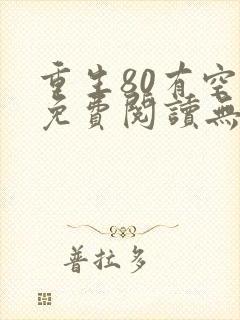 重生80有空
免費閱讀無
普拉多